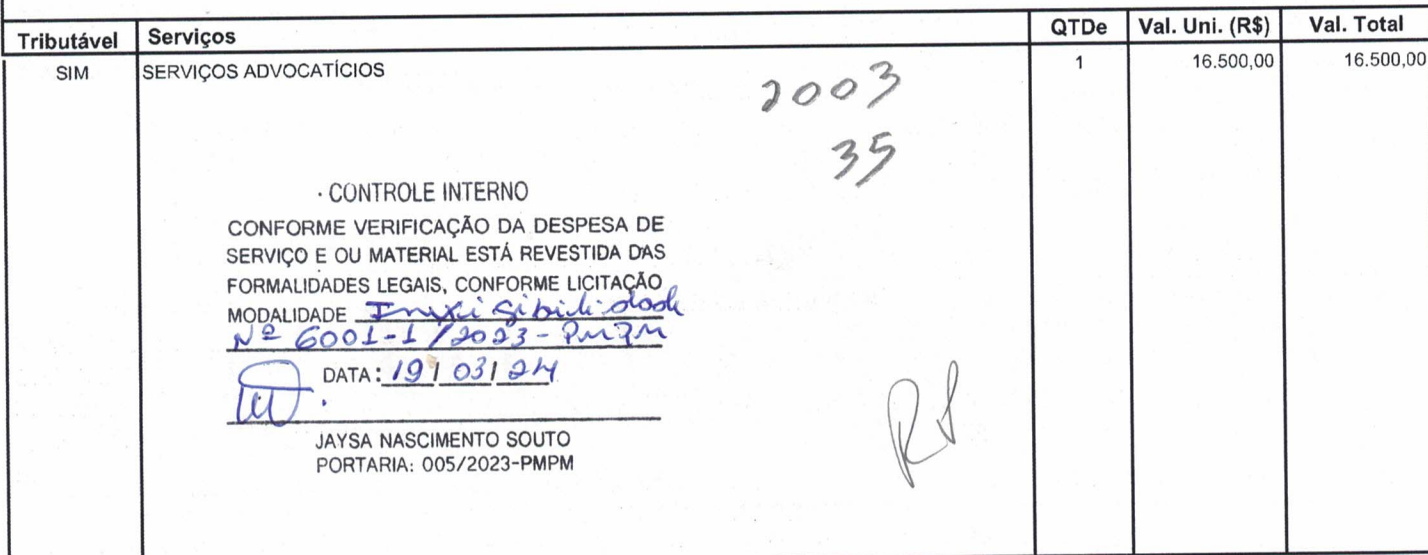 Tributável Serviços QTDe Val. Uni. (R$) Val. Total
SIM SERVIÇOS ADVOCATÍCIOS 1 16.500,00 16.500,00
2003
35
· CONTROLE INTERNO
CONFORME VERIFICAÇÃO DA DESPESA DE
SERVIÇO E OU MATERIAL ESTÁ REVESTIDA DAS
FORMALIDADES LEGAIS, CONFORME LICITAÇÃO
MODALIDADE Inexigibilidade
Nº 6001-1/2023-PMPM
DATA: 19/03/24
JAYSA NASCIMENTO SOUTO
PORTARIA: 005/2023-PMPM